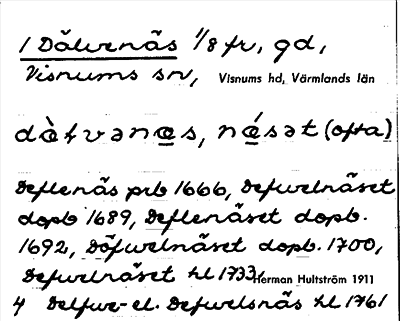 1 Dälvenäs 1/8 fr, gd,
Visnums sn, Visnums hd, Värmlands län
dä̀fvənæs, nǽsət (ofta)
Deflenäs prb 1666, Defwelnäset
dopb 1689, Deflenäset dopb.
1692, Döfwelnäset dopb. 1700,
Defwelnäset hl 1733, Herman Hultström 1911
4 Delfwe- el. Defwelsnäs hl 1761